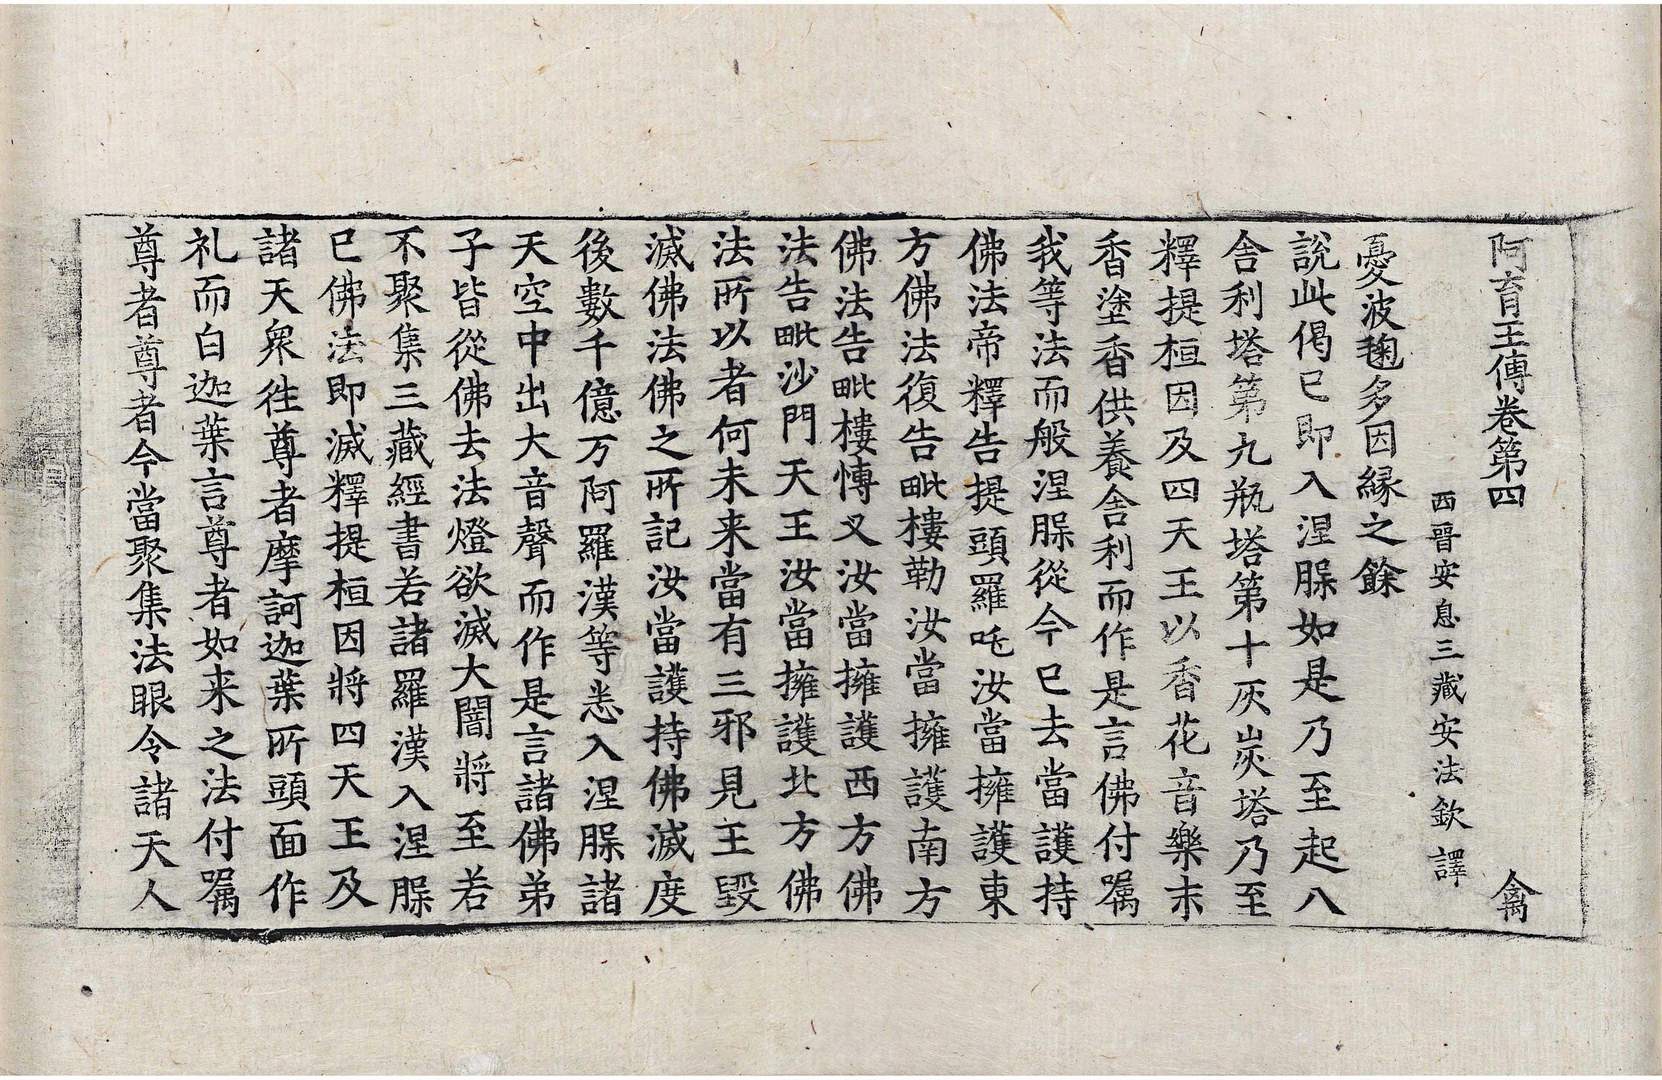 阿育王傳卷第四 禽
西晋安息三藏安法欽 譯
憂波毱多因縁之餘
說此偈已即入涅槃如是乃至起八
舍利塔第九瓶塔第十灰炭塔乃至
釋提桓因及四天王以香花音樂末
香塗香供養舍利而作是言佛付嘱
我等法而般涅槃從今已去當護持
佛法帝釋告提頭羅吒汝當擁護東
方佛法復告毗樓勒汝當擁護南方
佛法告毗樓慱叉汝當擁護西方佛
法告毗沙門天王汝當擁護北方佛
法所以者何未来當有三邪見王毀
滅佛法佛之所記汝當護持佛滅度
後數千億万阿羅漢等悉入涅槃諸
天空中出大音聲而作是言諸佛弟
子皆從佛去法燈欲滅大闇將至若
不聚集三藏經書若諸羅漢入涅槃
已佛法即滅釋提桓因將四天王及
諸天衆往尊者摩訶迦葉所頭面作
礼而白迦葉言尊者如来之法付嘱
尊者尊者今當聚集法眼令諸天人